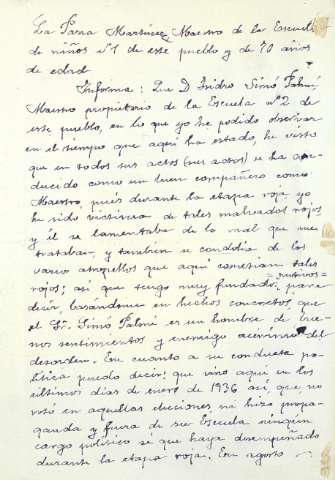 La Parra Martinez, Maestro de la Escuela
de niños nº 1 de este pueblo y de 70 años
de edad
Informa: Que D. Isidro Simó Palmí,
Maestro propietario de la Escuela nº 2 de
este pueblo, en lo que yo he podido observar
en el tiempo que aqui ha estado, he visto
que en todos sus actos (sus actos) se ha
ducido como un buen compañero como
Maestro, pués durante la etapa roja yo
he sido victima de tales malvados rojos
y él se lamentaba de lo mal que me
trataban y tambien se condolia de los
varios atropellos que aqui cometian tales
rojos; asi que tengo muy fundados motivos para
decir basándome en hechos concretos, que
el Sr. Simó Palmí es un hombre de bue-
nos sentimientos y enemigo acérrimo del
desorden. En cuanto a su conducta po-
litica puedo decir: que vino aqui en los
últimos dias de enero de 1936 asi que, no
votó en aquellas elecciones ni hizo propa-
ganda y fuera de su Escuela ningún
cargo politico sé que haya desempeñado
durante la etapa roja. En agosto